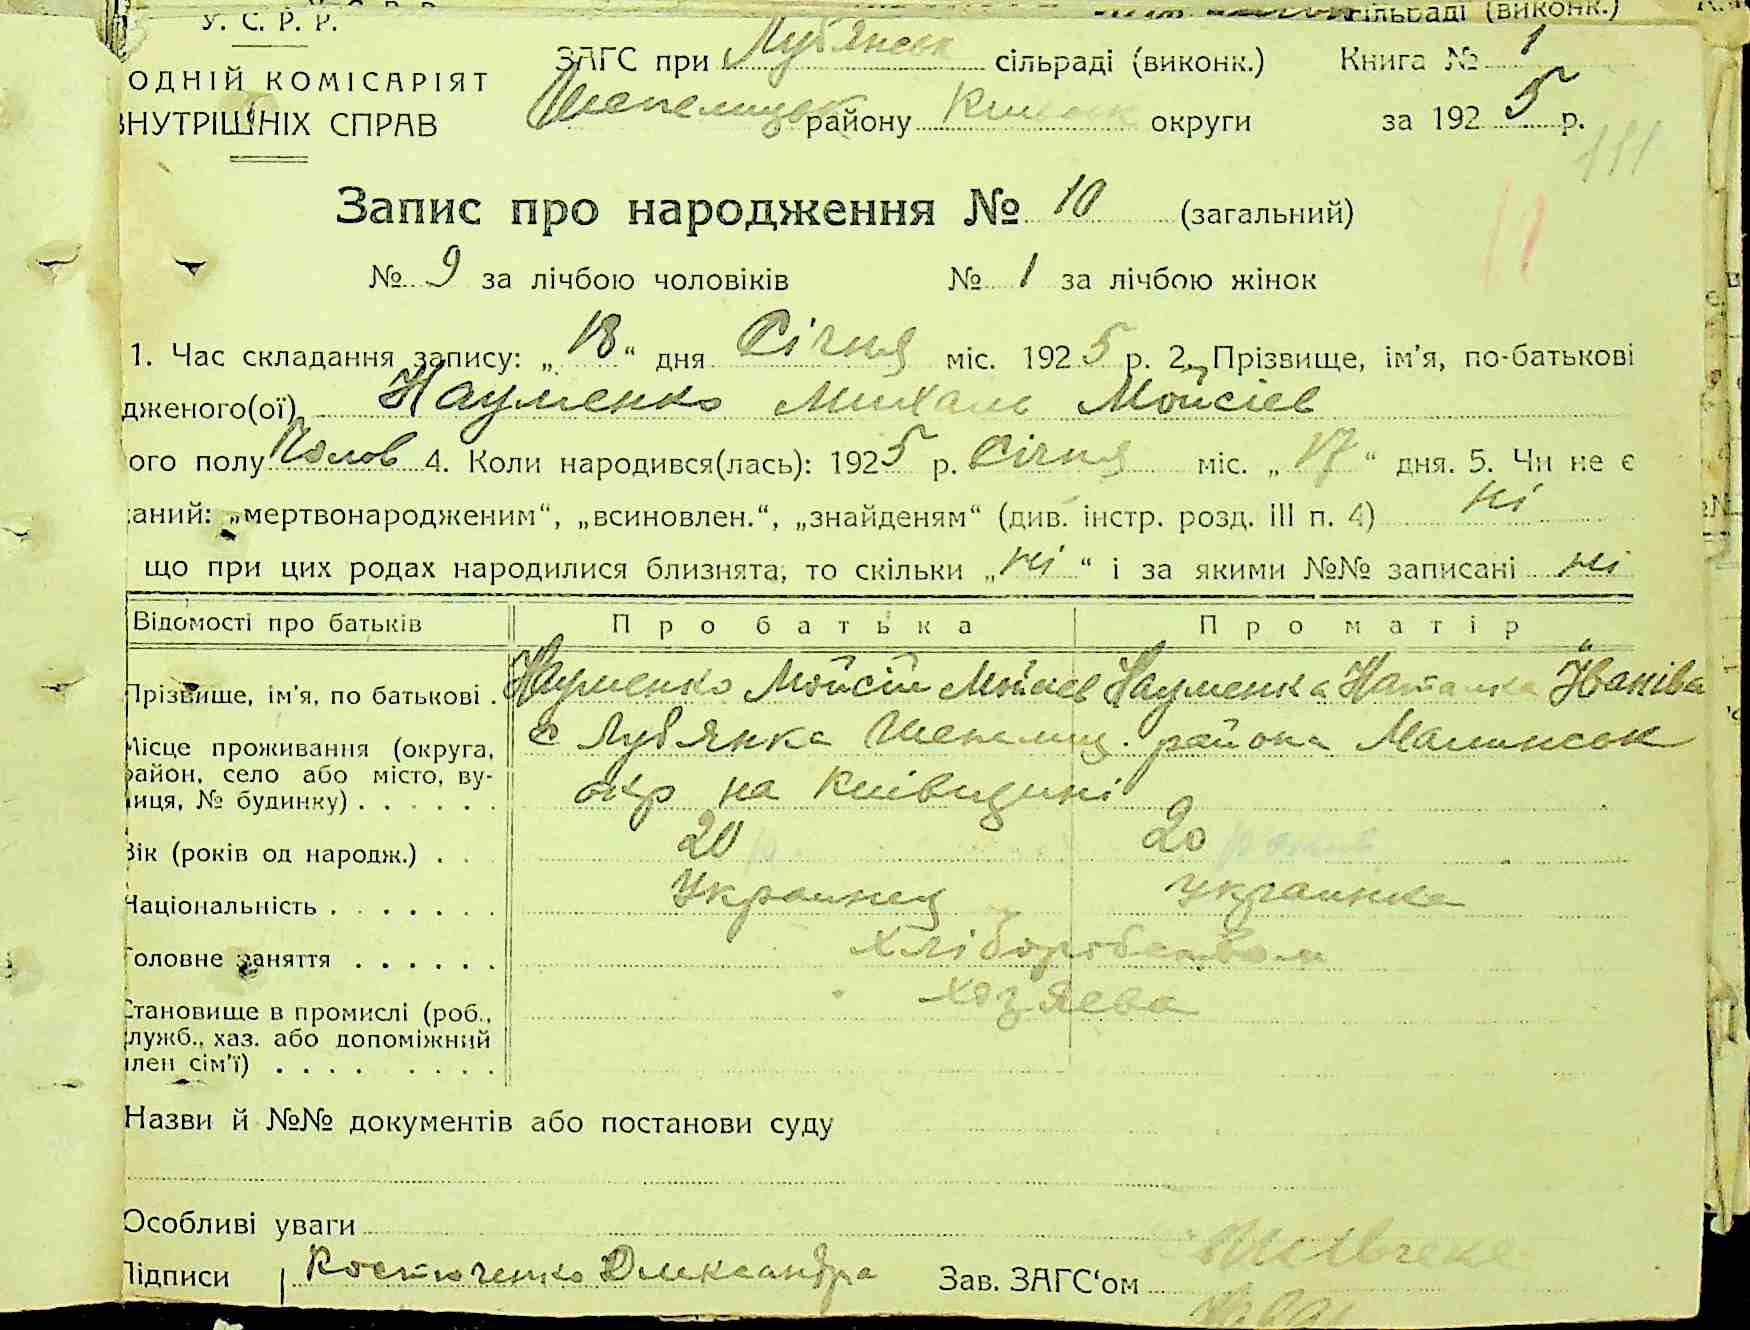 сільраді (виконк.)
У. С. Р. Р.
ОДНІЙ КОМІСАРІЯТ
ВНУТРІШНІХ СПРАВ
ЗАГС при Луб'янськ сільраді (виконк.) Книга № 1
Шепелицьк району округи за 1925 р.
111
Запис про народження № 10 (загальний)
11
№ 9 за лічбою чоловіків № 1 за лічбою жінок
1. Час складання запису: „18“ дня Січня міс. 1925 р. 2. Прізвище, ім'я, по-батькові
дженого(ої) Науменко Михаль Мойсіев
ого полу Чолов 4. Коли народився(лась): 1925 р. Січня міс. „17“ дня. 5. Чи не є
аний: „мертвонародженим“, „всиновлен.“, „знайденям“ (див. інстр. розд. III п. 4) ні
що при цих родах народилися близнята, то скільки „ні“ і за якими №№ записані ні
Відомості про батьків Про батька Про матір
Прізвище, ім'я, по батькові . Науменко Мойсій Науменка Наталка Іванівa
Місце проживання (округа, с Луб'янка Шепелиц. района Малинськ
район, село або місто, ву-
лиця, № будинку) . . . . . . окр на Київщині
Вік (років од народж.) . . 20 20
Національність . . . . . . . Украинец украинка
Головне заняття . . . . . . хліборобством
Становище в промислі (роб., хозяева
служб., хаз. або допоміжний
член сім'ї) . . . . . . . .
Назви й №№ документів або постанови суду
Особливі уваги
Підписи Костюченко Олександра Зав. ЗАГС‘ом